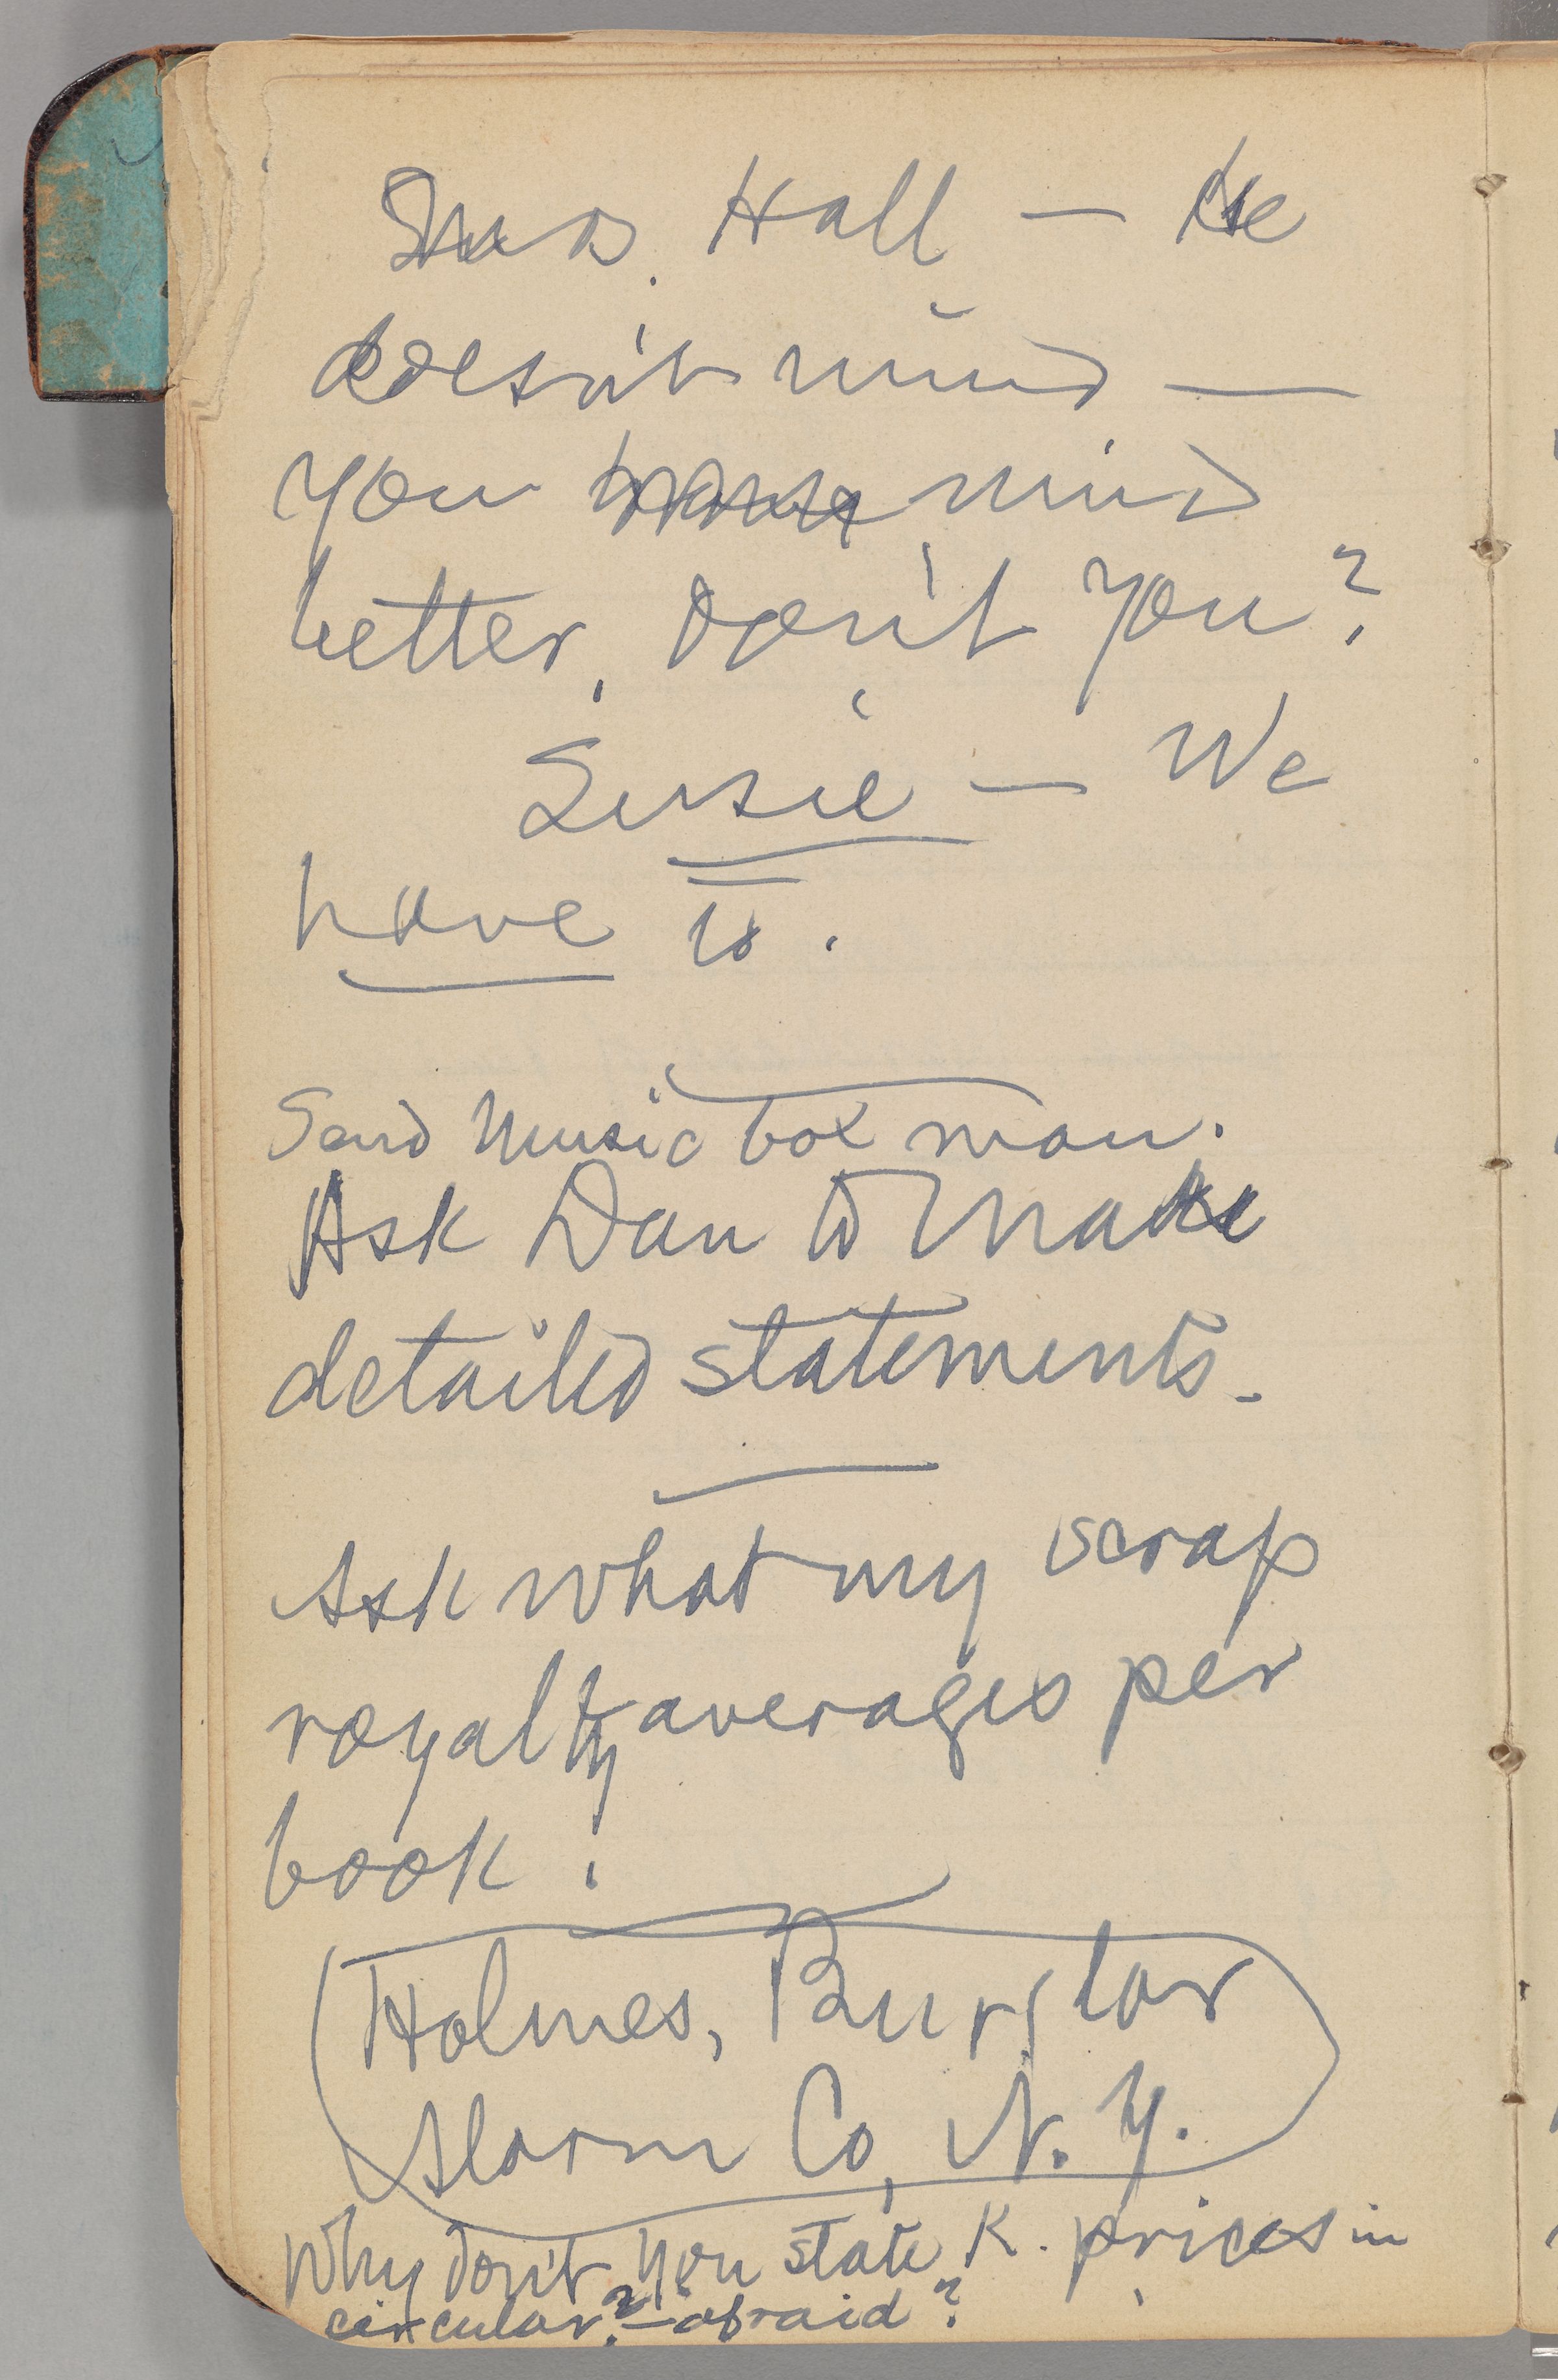 Hall — He
doesn't mind —
you mind
better, don't you?
Susie — We
have to.
Send Music box man.
Ask Dan to make
detailed statements.
Ask what my scrap
royalty averages per
book.
Holmes, Burglar
Alarm Co, N. Y.
Why don't you state K. prices in
circular? — afraid?